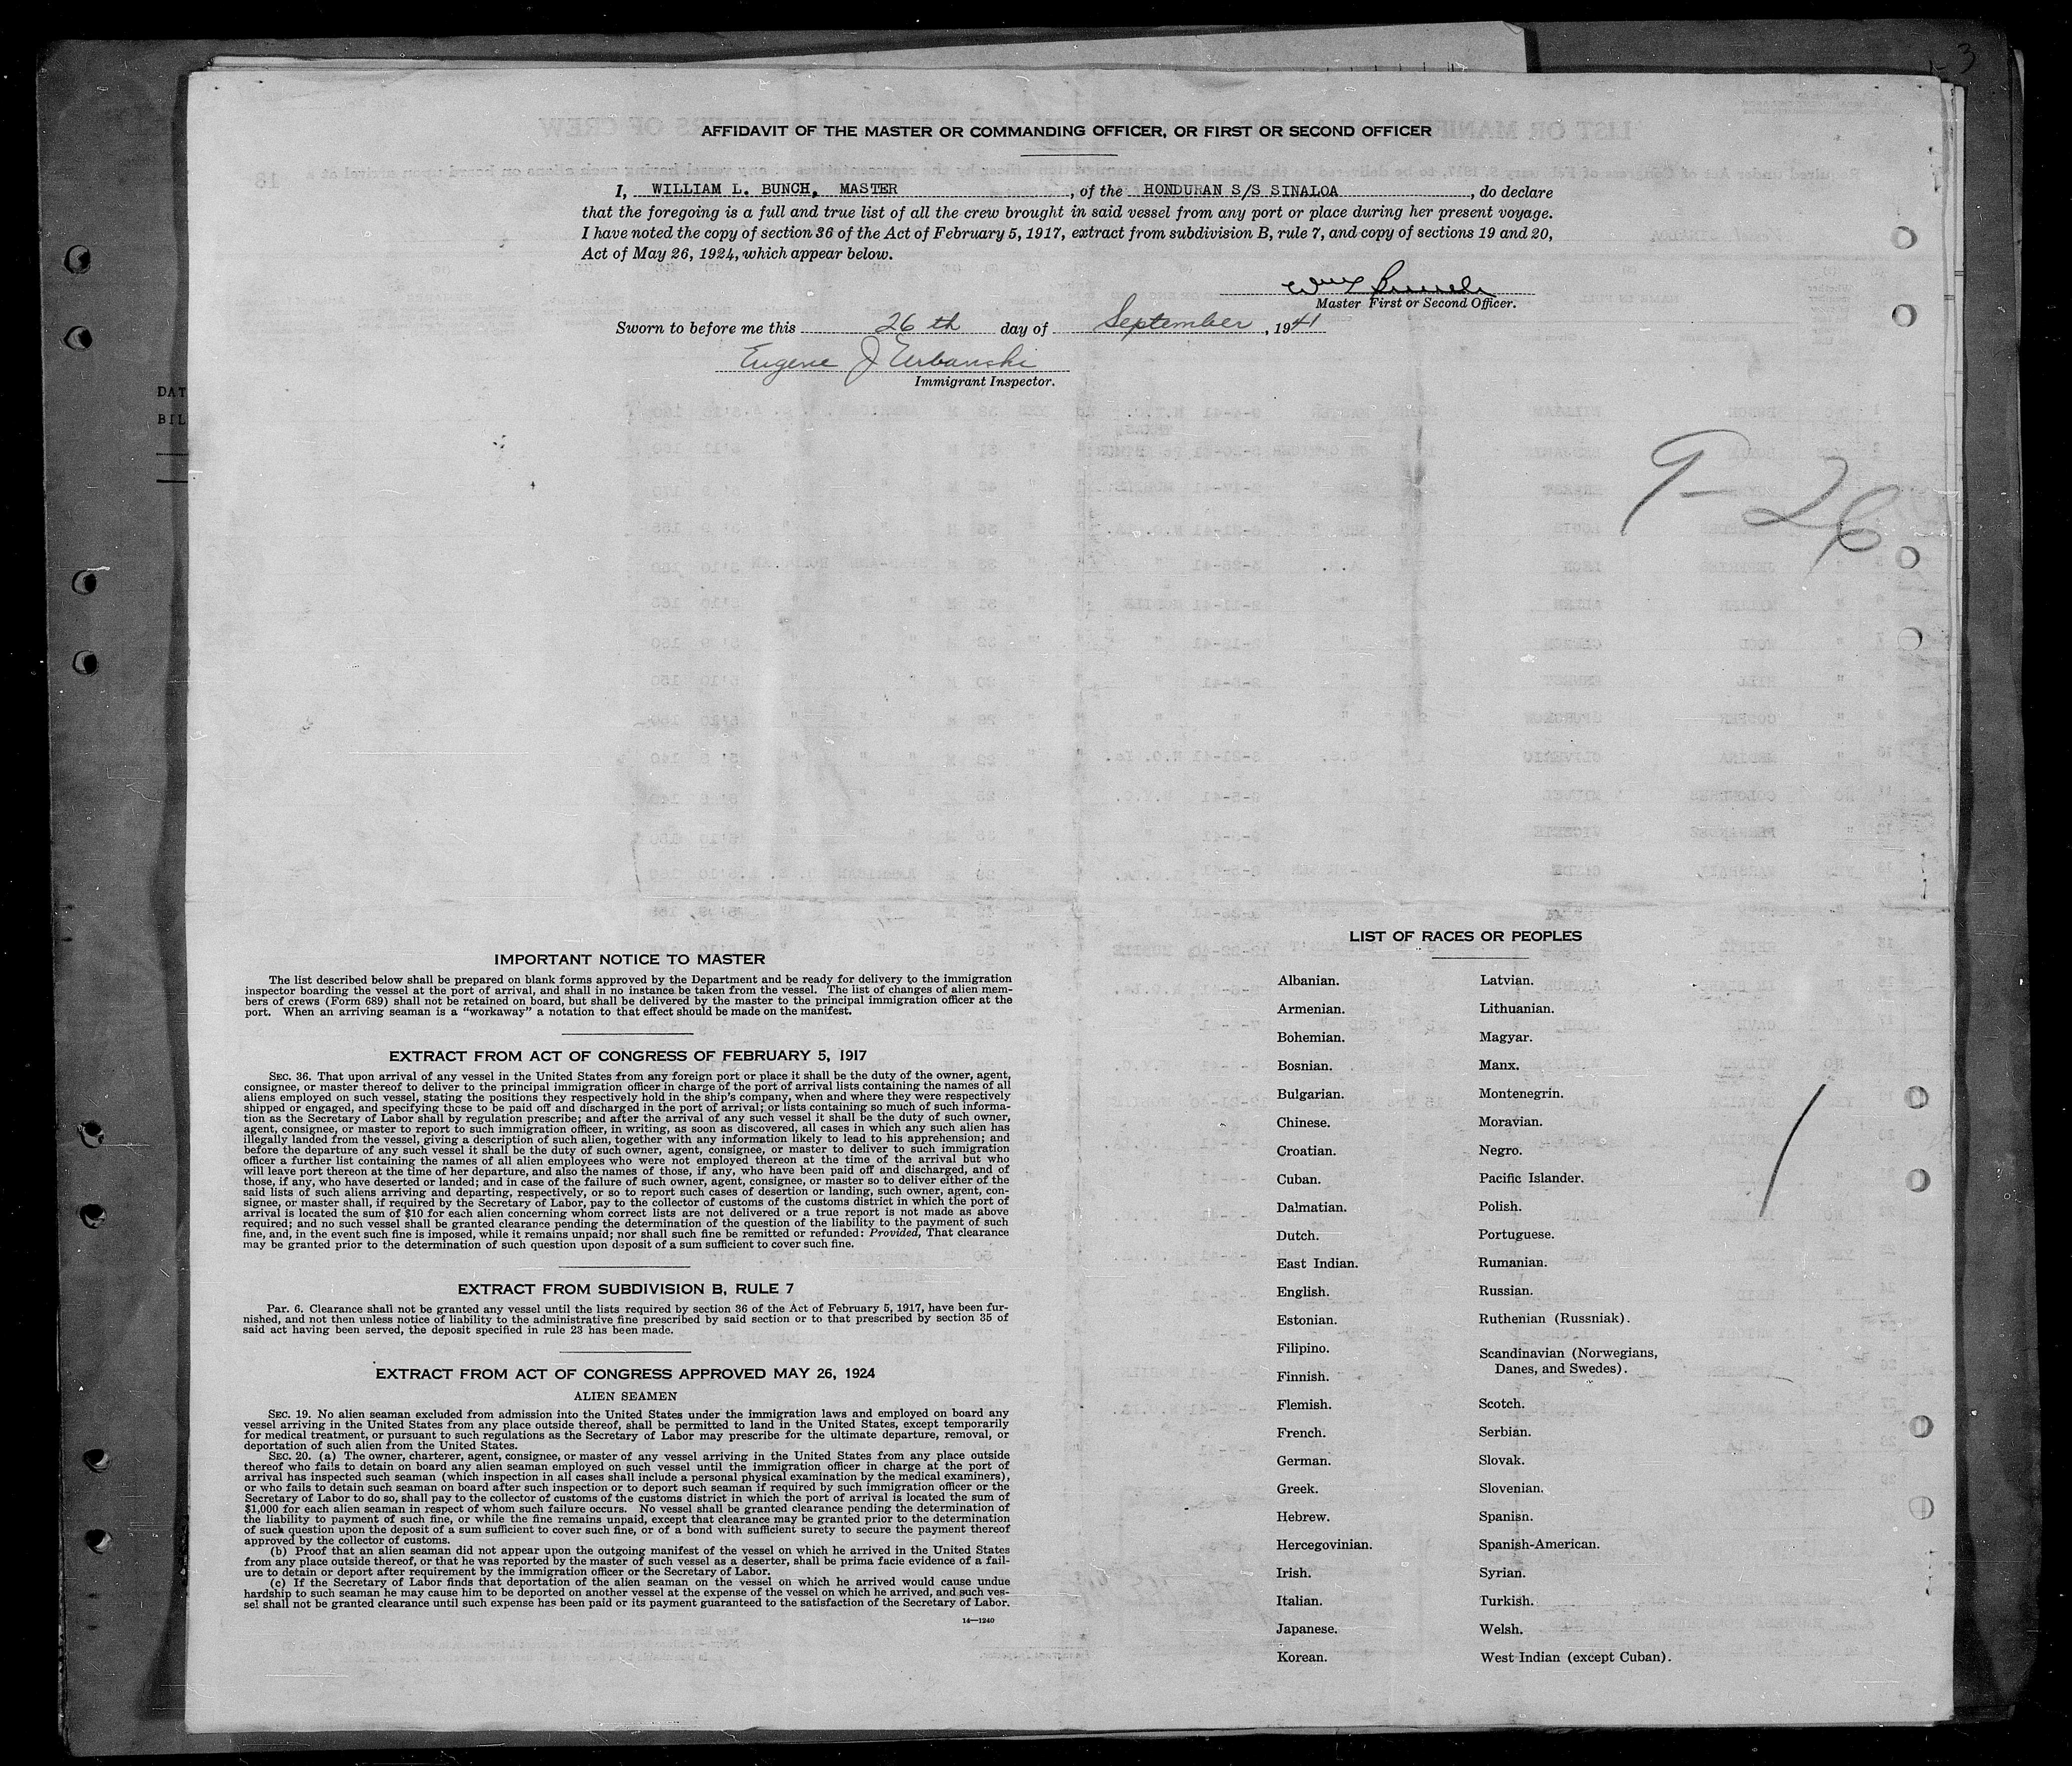 3
AFFIDAVIT OF THE MASTER OR COMMANDING OFFICER, OR FIRST OR SECOND OFFICER
I, WILLIAM L. BUNCH, MASTER, of the HONDURAN S/S SINALOA, do declare
that the foregoing is a full and true list of all the crew brought in said vessel from any port or place during her present voyage.
I have noted the copy of section 36 of the Act of February 5, 1917, extract from subdivision B, rule 7, and copy of sections 19 and 20,
Act of May 26, 1924, which appear below.
Wm L Bunch
Master First or Second Officer.
Sworn to before me this 26th day of September, 1941
Eugene J Urbanski
Immigrant Inspector.
DAT
BIL
9-26
IMPORTANT NOTICE TO MASTER
The list described below shall be prepared on blank forms approved by the Department and be ready for delivery to the immigration
inspector boarding the vessel at the port of arrival, and shall in no instance be taken from the vessel. The list of changes of alien mem-
bers of crews (Form 689) shall not be retained on board, but shall be delivered by the master to the principal immigration officer at the
port. When an arriving seaman is a "workaway" a notation to that effect should be made on the manifest.
EXTRACT FROM ACT OF CONGRESS OF FEBRUARY 5, 1917
SEC. 36. That upon arrival of any vessel in the United States from any foreign port or place it shall be the duty of the owner, agent,
consignee, or master thereof to deliver to the principal immigration officer in charge of the port of arrival lists containing the names of all
aliens employed on such vessel, stating the positions they respectively hold in the ship's company, when and where they were respectively
shipped or engaged, and specifying those to be paid off and discharged in the port of arrival; or lists containing so much of such informa-
tion as the Secretary of Labor shall by regulation prescribe; and after the arrival of any such vessel it shall be the duty of such owner,
agent, consignee, or master to report to such immigration officer, in writing, as soon as discovered, all cases in which any such alien has
illegally landed from the vessel, giving a description of such alien, together with any information likely to lead to his apprehension; and
before the departure of any such vessel it shall be the duty of such owner, agent, consignee, or master to deliver to such immigration
officer a further list containing the names of all alien employees who were not employed thereon at the time of the arrival but who
will leave port thereon at the time of her departure, and also the names of those, if any, who have been paid off and discharged, and of
those, if any, who have deserted or landed; and in case of the failure of such owner, agent, consignee, or master so to deliver either of the
said lists of such aliens arriving and departing, respectively, or so to report such cases of desertion or landing, such owner, agent, con-
signee, or master shall, if required by the Secretary of Labor, pay to the collector of customs of the customs district in which the port of
arrival is located the sum of $10 for each alien concerning whom correct lists are not delivered or a true report is not made as above
required; and no such vessel shall be granted clearance pending the determination of the question of the liability to the payment of such
fine, and, in the event such fine is imposed, while it remains unpaid; nor shall such fine be remitted or refunded: Provided, That clearance
may be granted prior to the determination of such question upon deposit of a sum sufficient to cover such fine.
EXTRACT FROM SUBDIVISION B, RULE 7
Par. 6. Clearance shall not be granted any vessel until the lists required by section 36 of the Act of February 5, 1917, have been fur-
nished, and not then unless notice of liability to the administrative fine prescribed by said section or to that prescribed by section 35 of
said act having been served, the deposit specified in rule 23 has been made.
EXTRACT FROM ACT OF CONGRESS APPROVED MAY 26, 1924
ALIEN SEAMEN
SEC. 19. No alien seaman excluded from admission into the United States under the immigration laws and employed on board any
vessel arriving in the United States from any place outside thereof, shall be permitted to land in the United States, except temporarily
for medical treatment, or pursuant to such regulations as the Secretary of Labor may prescribe for the ultimate departure, removal, or
deportation of such alien from the United States.
SEC. 20. (a) The owner, charterer, agent, consignee, or master of any vessel arriving in the United States from any place outside
thereof who fails to detain on board any alien seaman employed on such vessel until the immigration officer in charge at the port of
arrival has inspected such seaman (which inspection in all cases shall include a personal physical examination by the medical examiners),
or who fails to detain such seaman on board after such inspection or to deport such seaman if required by such immigration officer or the
Secretary of Labor to do so, shall pay to the collector of customs of the customs district in which the port of arrival is located the sum of
$1,000 for each alien seaman in respect of whom such failure occurs. No vessel shall be granted clearance pending the determination of
the liability to payment of such fine, or while the fine remains unpaid, except that clearance may be granted prior to the determination
of such question upon the deposit of a sum sufficient to cover such fine, or of a bond with sufficient surety to secure the payment thereof
approved by the collector of customs.
(b) Proof that an alien seaman did not appear upon the outgoing manifest of the vessel on which he arrived in the United States
from any place outside thereof, or that he was reported by the master of such vessel as a deserter, shall be prima facie evidence of a fail-
ure to detain or deport after requirement by the immigration officer or the Secretary of Labor.
(c) If the Secretary of Labor finds that deportation of the alien seaman on the vessel on which he arrived would cause undue
hardship to such seaman he may cause him to be deported on another vessel at the expense of the vessel on which he arrived, and such ves-
sel shall not be granted clearance until such expense has been paid or its payment guaranteed to the satisfaction of the Secretary of Labor.
14—1240
LIST OF RACES OR PEOPLES
Albanian.
Armenian.
Bohemian.
Bosnian.
Bulgarian.
Chinese.
Croatian.
Cuban.
Dalmatian.
Dutch.
East Indian.
English.
Estonian.
Filipino.
Finnish.
Flemish.
French.
German.
Greek.
Hebrew.
Hercegovinian.
Irish.
Italian.
Japanese.
Korean.
Latvian.
Lithuanian.
Magyar.
Manx.
Montenegrin.
Moravian.
Negro.
Pacific Islander.
Polish.
Portuguese.
Rumanian.
Russian.
Ruthenian (Russniak).
Scandinavian (Norwegians,
Danes, and Swedes).
Scotch.
Serbian.
Slovak.
Slovenian.
Spanish.
Spanish-American.
Syrian.
Turkish.
Welsh.
West Indian (except Cuban).